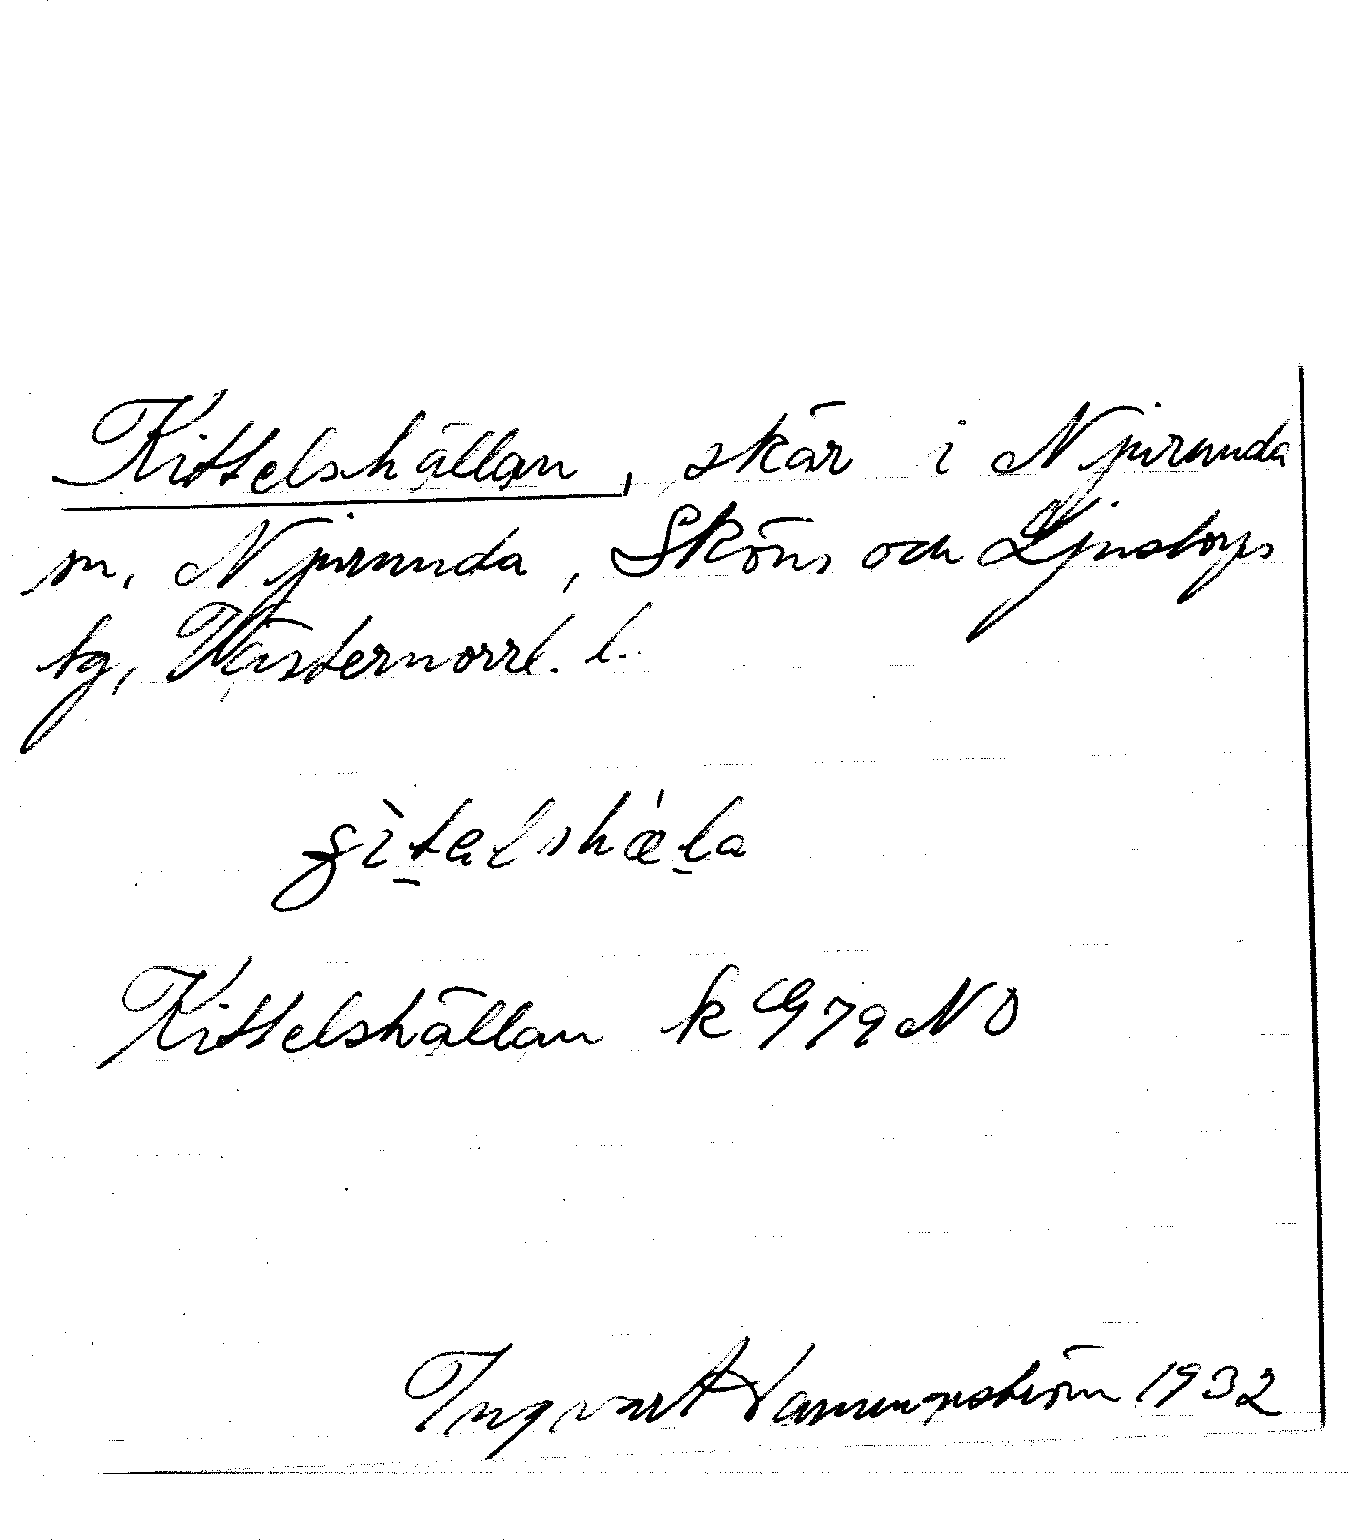 Kittelshällan, skär i Njurunda
sn, Njurunda, Sköns och Ljustorps
tg, Västernorrl. l.
Kittelshällan k G79 NO
Ingvart 1932